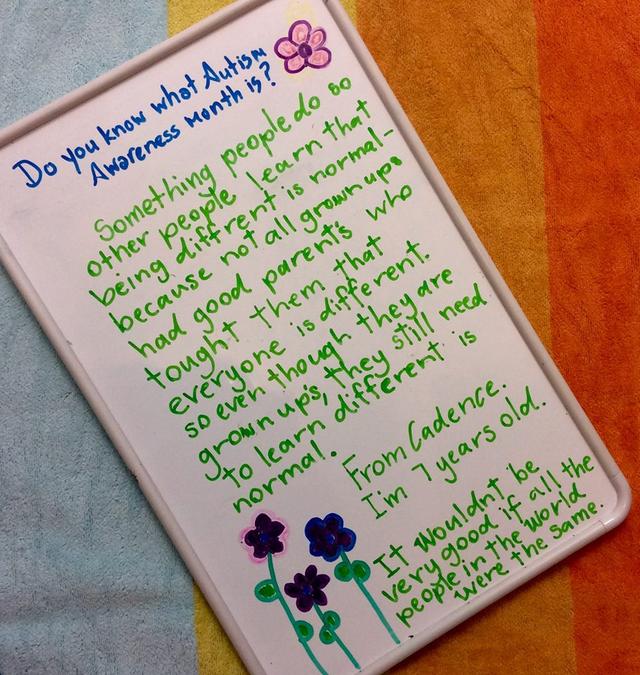 Do you know what Autism
Awareness Month is?
Something people do so
other people learn that
being diffrent is normal-
because not all grown ups
had good parent's who
tought them that
everyone is different.
so even though they are
grown up's, they still need
to learn different is
normal.
From Cadence.
I'm 7 years old.
It wouldnt be
very good if all the
people in the world
were the same.